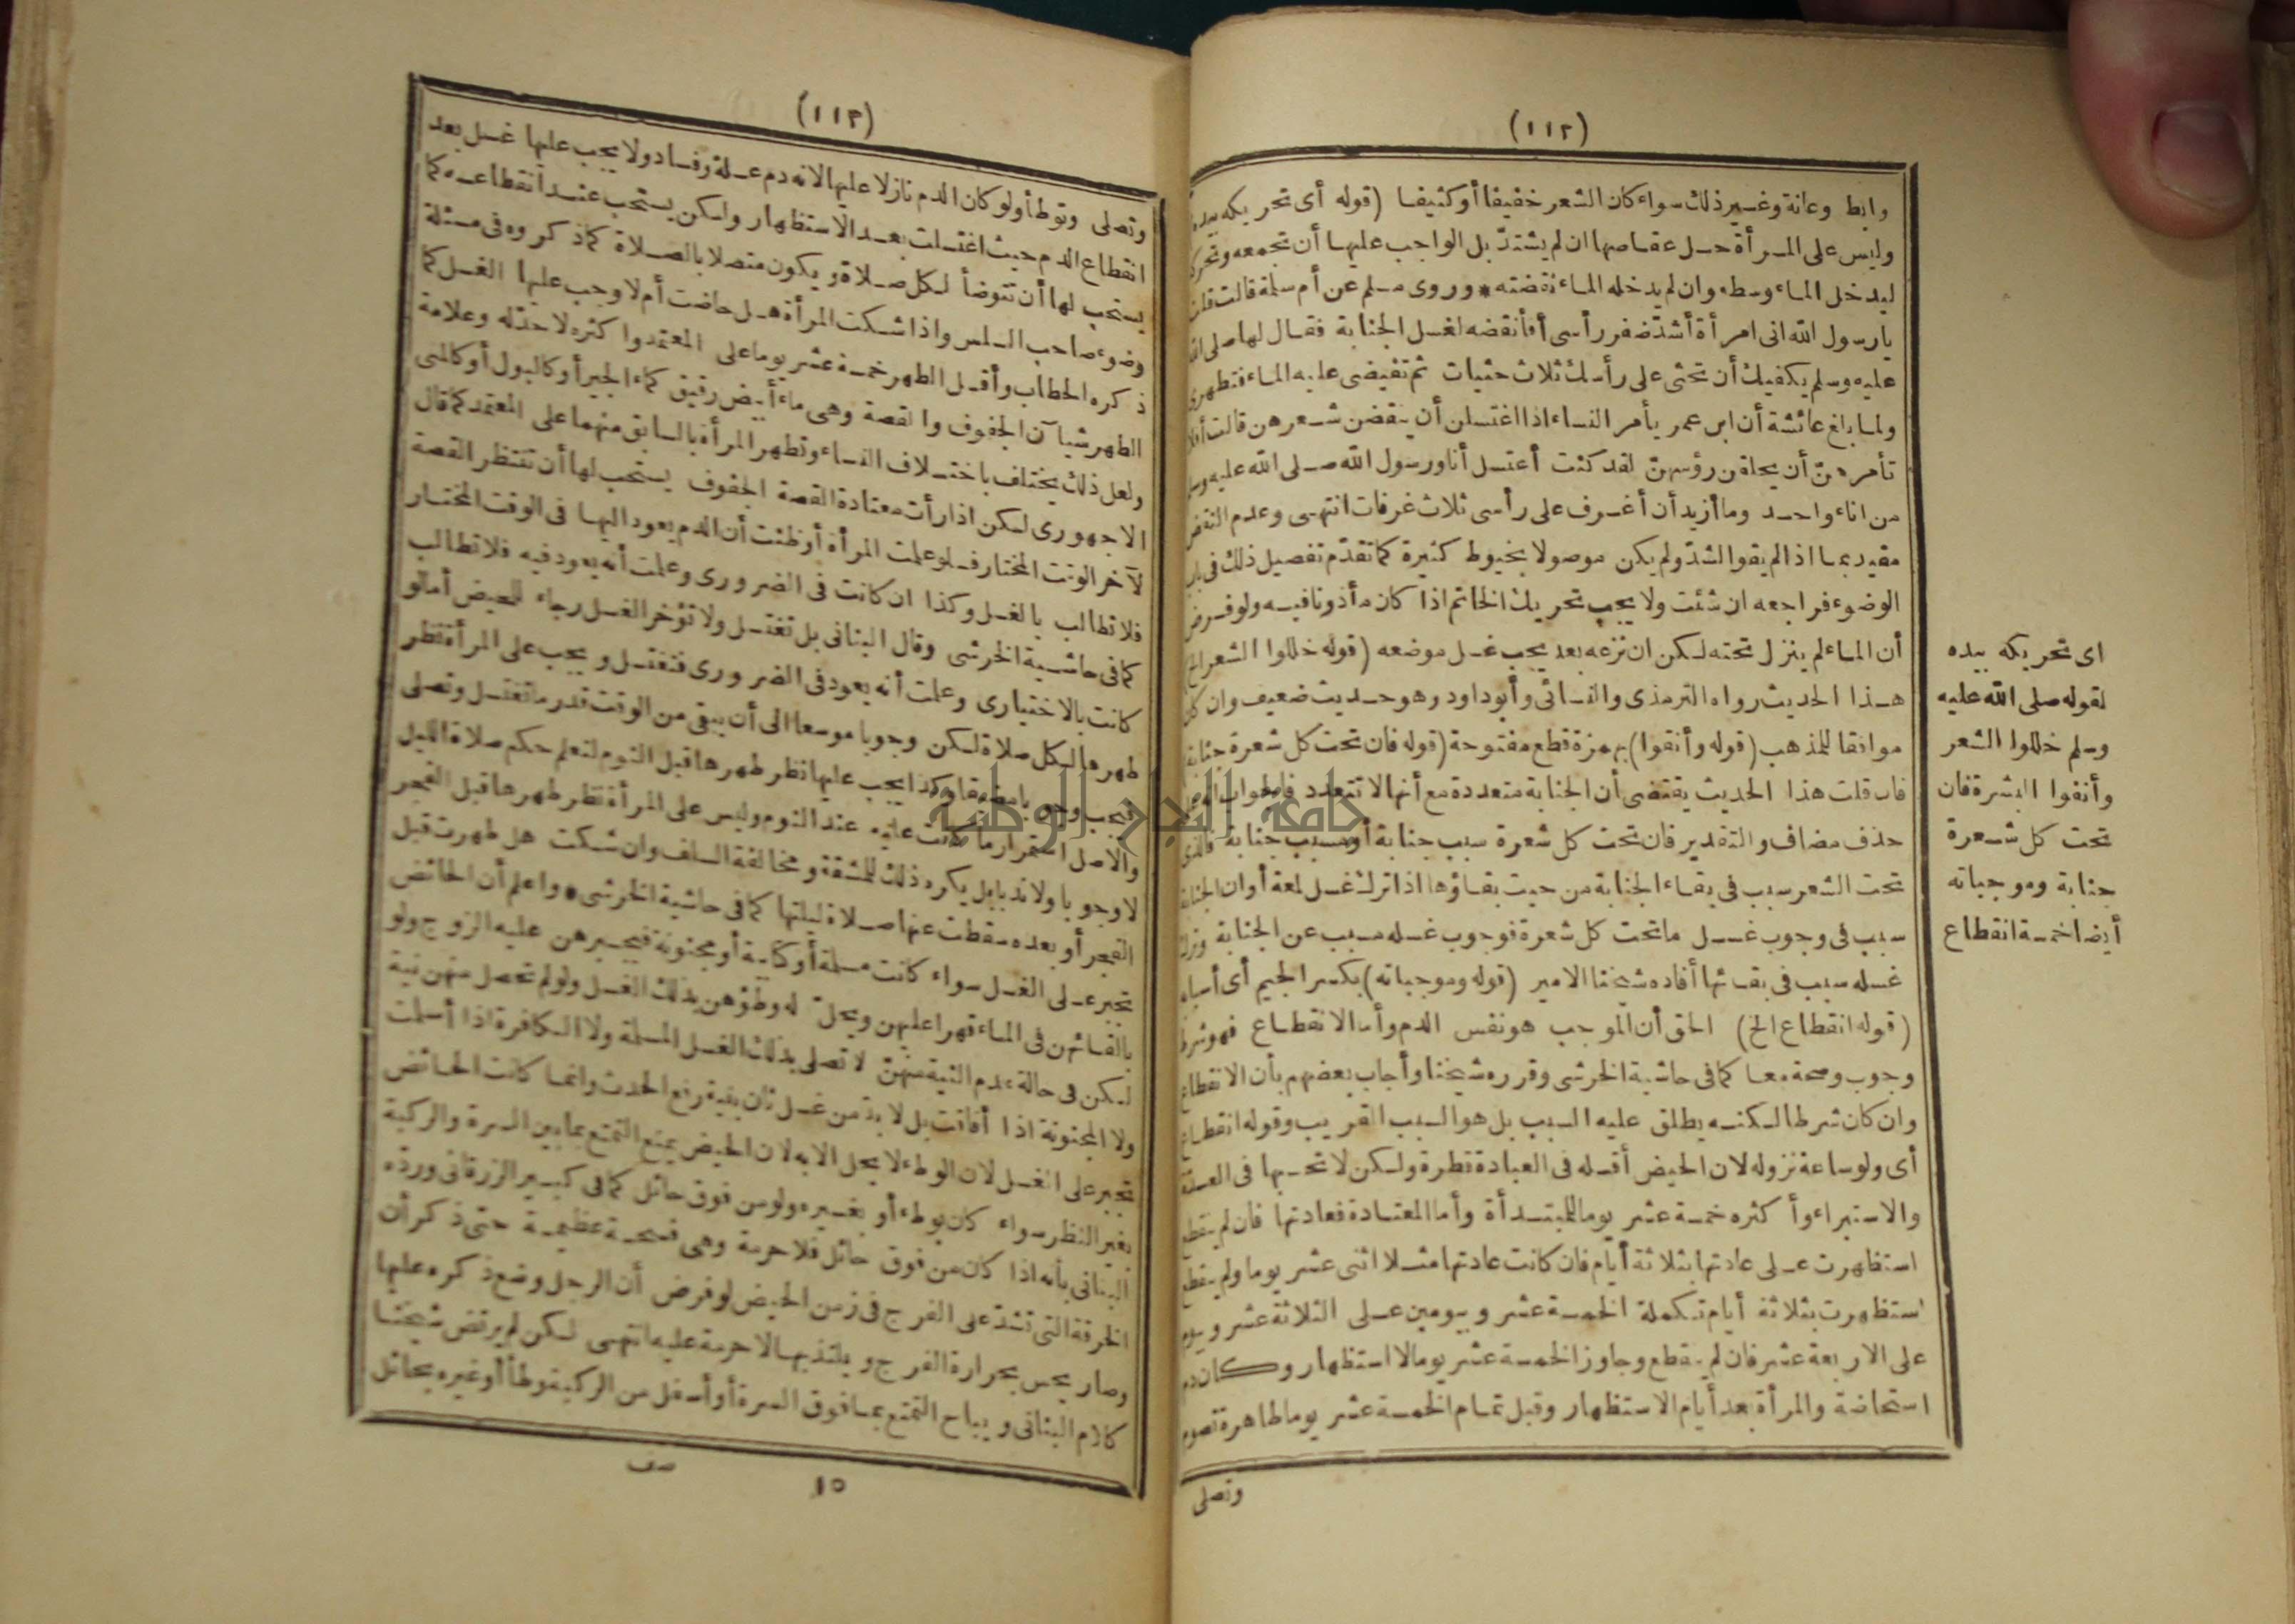 (١١٢)
وابط وعانة وغير ذلك سواء كان الشعر خفيفا أو كثيفا (قوله أى تحريكه بيده
وليس على المرأة حل عقاصها ان لم يشتدّ بل الواجب عليها أن تجمعه وتحركه
ليدخل الماء وسطه وان لم يدخله الماء نقضته * وروى مسلم عن أم سلمة قالت قلت
يا رسول الله انى امرأة أشدّ ضفر رأسى أفأنقضه لغسل الجنابة فقال لها صلى الله
عليه وسلم يكفيك أن تحثى على رأسك ثلاث حثيات ثم تفيضى عليه الماء فتطهرى
ولما بلغ عائشة أن ابن عمر يأمر النساء اذا اغتسلن أن ينقضن شعرهن قالت أفلا
تأمرهنّ أن يحلقن رؤسهنّ لقد كنت أغتسل أنا ورسول الله صلى الله عليه وسلم
من اناء واحد وما أزيد أن أغرف على رأسى ثلاث غرفات انتهى وعدم النقض
مقيد بما اذا لم يقو الشدّ ولم يكن موصولا بخيوط كثيرة كما تقدّم تفصيل ذلك فى باب
الوضوء فراجعه ان شئت ولا يجب تحريك الخاتم اذا كان مأذونا فيه ولو فرض
أن الماء لم ينزل تحته لكن ان نزعه بعد يجب غسل موضعه (قوله خللوا الشعر الخ
هذا الحديث رواه الترمذى والنسائى وأبو داود وهو حديث ضعيف وان كان
موافقا للمذهب (قوله وأنقوا) بهمزة قطع مفتوحة (قوله فان تحت كل شعرة جنابة
فان قلت هذا الحديث يقتضى أن الجنابة متعددة مع أنها لا تتعدد فالجواب أنه
حذف مضاف والتقدير فان تحت كل شعرة سبب جنابة أو مسبب جنابة فالذى
تحت الشعر سبب فى بقاء الجنابة من حيث بقاؤها اذا ترك غسل لمعة أو ان الجنابة
سبب فى وجوب غسل ما تحت كل شعرة فوجوب غسله مسبب عن الجنابة وترك
غسله سبب فى بقائها أفاده شيخنا الامير (قوله وموجباته) بكسر الجيم أى أسبابه
(قوله انقطاع الخ) الحق أن الموجب هو نفس الدم وأما الانقطاع فهو شرط
وجوب وصحة معا كما فى حاشية الخرشى وقرره شيخنا وأجاب بعضهم بأن الانقطاع
وان كان شرطا لكنه يطلق عليه السبب بل هو السبب القريب وقوله انقطاع
أى ولو ساعة نزوله لان الحيض أقله فى العبادة قطرة ولكن لا تحسبها فى العدّة
والاستبراء وأكثره خمسة عشر يوما للمبتدأة وأما المعتادة فعادتها فان لم ينقطع
استظهرت على عادتها بثلاثة أيام فان كانت عادتها مثلا اثنى عشر يوما ولم ينقطع
استظهرت بثلاثة أيام تكملة الخمسة عشر وبيومين على الثلاثة عشر وبيوم
على الاربعة عشر فان لم ينقطع وجاوز الخمسة عشر يوما لا استظهار وكان دم
استحاضة والمرأة بعد أيام الاستظهار وقبل تمام الخمسة عشر يوما طاهرة تصوم
وتصلى
اى تحريكه بيده
لقوله صلى الله عليه
وسلم خللوا الشعر
وأنقوا البشرة فان
تحت كل شعرة
جنابة وموجباته
أيضا خمسة انقطاع
(١١٣)
وتصلى وتوطأ ولو كان الدم نازلا عليها لانه دم علة وفساد ولا يجب عليها غسل بعد
انقطاع الدم حيث اغتسلت بعد الاستظهار ولكن يستحب عند انقطاعه كما
يستحب لها أن تتوضأ لكل صلاة ويكون متصلا بالصلاة كما ذكروه فى مسئلة
وضوء صاحب السلس واذا شكت المرأة هل حاضت أم لا وجب عليها الغسل كما
ذكره الحطاب وأقل الطهر خمسة عشر يوما على المعتمد وأكثره لا حدّ له وعلامة
الطهر شيآن الجفوف والقصة وهى ماء أبيض رقيق كماء الجير أو كالبول أو كالمنى
ولعل ذلك يختلف باختلاف النساء وتطهر المرأة بالسابق منهما على المعتمد كما قال
الاجهورى لكن اذا رأت معتادة القصة الجفوف يستحب لها أن تنتظر القصة
لآخر الوقت المختار فلو علمت المرأة أو ظنت أن الدم يعود اليها فى الوقت المختار
فلا تطالب بالغسل وكذا ان كانت فى الضرورى وعلمت أنه يعود فيه فلا تطالب
كما فى حاشية الخرشى وقال البنانى بل تغتسل ولا تؤخر الغسل رجاء للحيض أما لو
كانت بالاختيارى وعلمت أنه يعود فى الضرورى فتغتسل ويجب على المرأة نظر
طهرها لكل صلاة لكن وجوبا موسعا الى أن يبقى من الوقت قدر ما تغتسل وتصلى
فيجب وجوبا مضيقا وكذا يجب عليها نظر طهرها قبل النوم لتعلم حكم صلاة الليل
والاصل استمرار ما كانت عليه عند النوم وليس على المرأة نظر طهرها قبل الفجر
لا وجوبا ولا ندبا بل يكره ذلك للمشقة ومخالفة السلف وان شكت هل طهرت قبل
الفجر أو بعده سقطت عنها صلاة ليلتها كما فى حاشية الخرشى * واعلم أن الحائض
تجبر على الغسل سواء كانت مسلمة أو كتابية أو مجنونة فيجبرهن عليه الزوج ولو
بالقائهن فى الماء قهرا عليهن ويحلّ له وطؤهن بذلك الغسل ولو لم تحصل منهن نية
لكن فى حالة عدم النية منهنّ لا تصلى بذلك الغسل المسلمة ولا الكافرة اذا أسلمت
ولا المجنونة اذا أفاقت بل لا بدّ من غسل ثان بنية رفع الحدث وانما كانت الحائض
تجبر على الغسل لان الوطء لا يحل الا به لان الحيض يمنع التمتع بما بين السرة والركبة
بغير النظر سواء كان بوطء أو بغيره ولو من فوق حائل كما فى كبير الزرقانى وردّه
البنانى بأنه اذا كان من فوق حائل فلا حرمة وهى فسحة عظيمة حتى ذكر أن
الخرقة التى تشدّ على الفرج فى زمن الحيض لو فرض أن الرجل وضع ذكره عليها
وصار يحس بحرارة الفرج ويلتذ بها لا حرمة عليه انتهى لكن لم يرتض شيخنا
كلام البنانى ويباح التمتع بما فوق السرة أو أسفل من الركبة وطأ أو غيره بحائل
١٥
صف
جامعة النجاح الوطنية